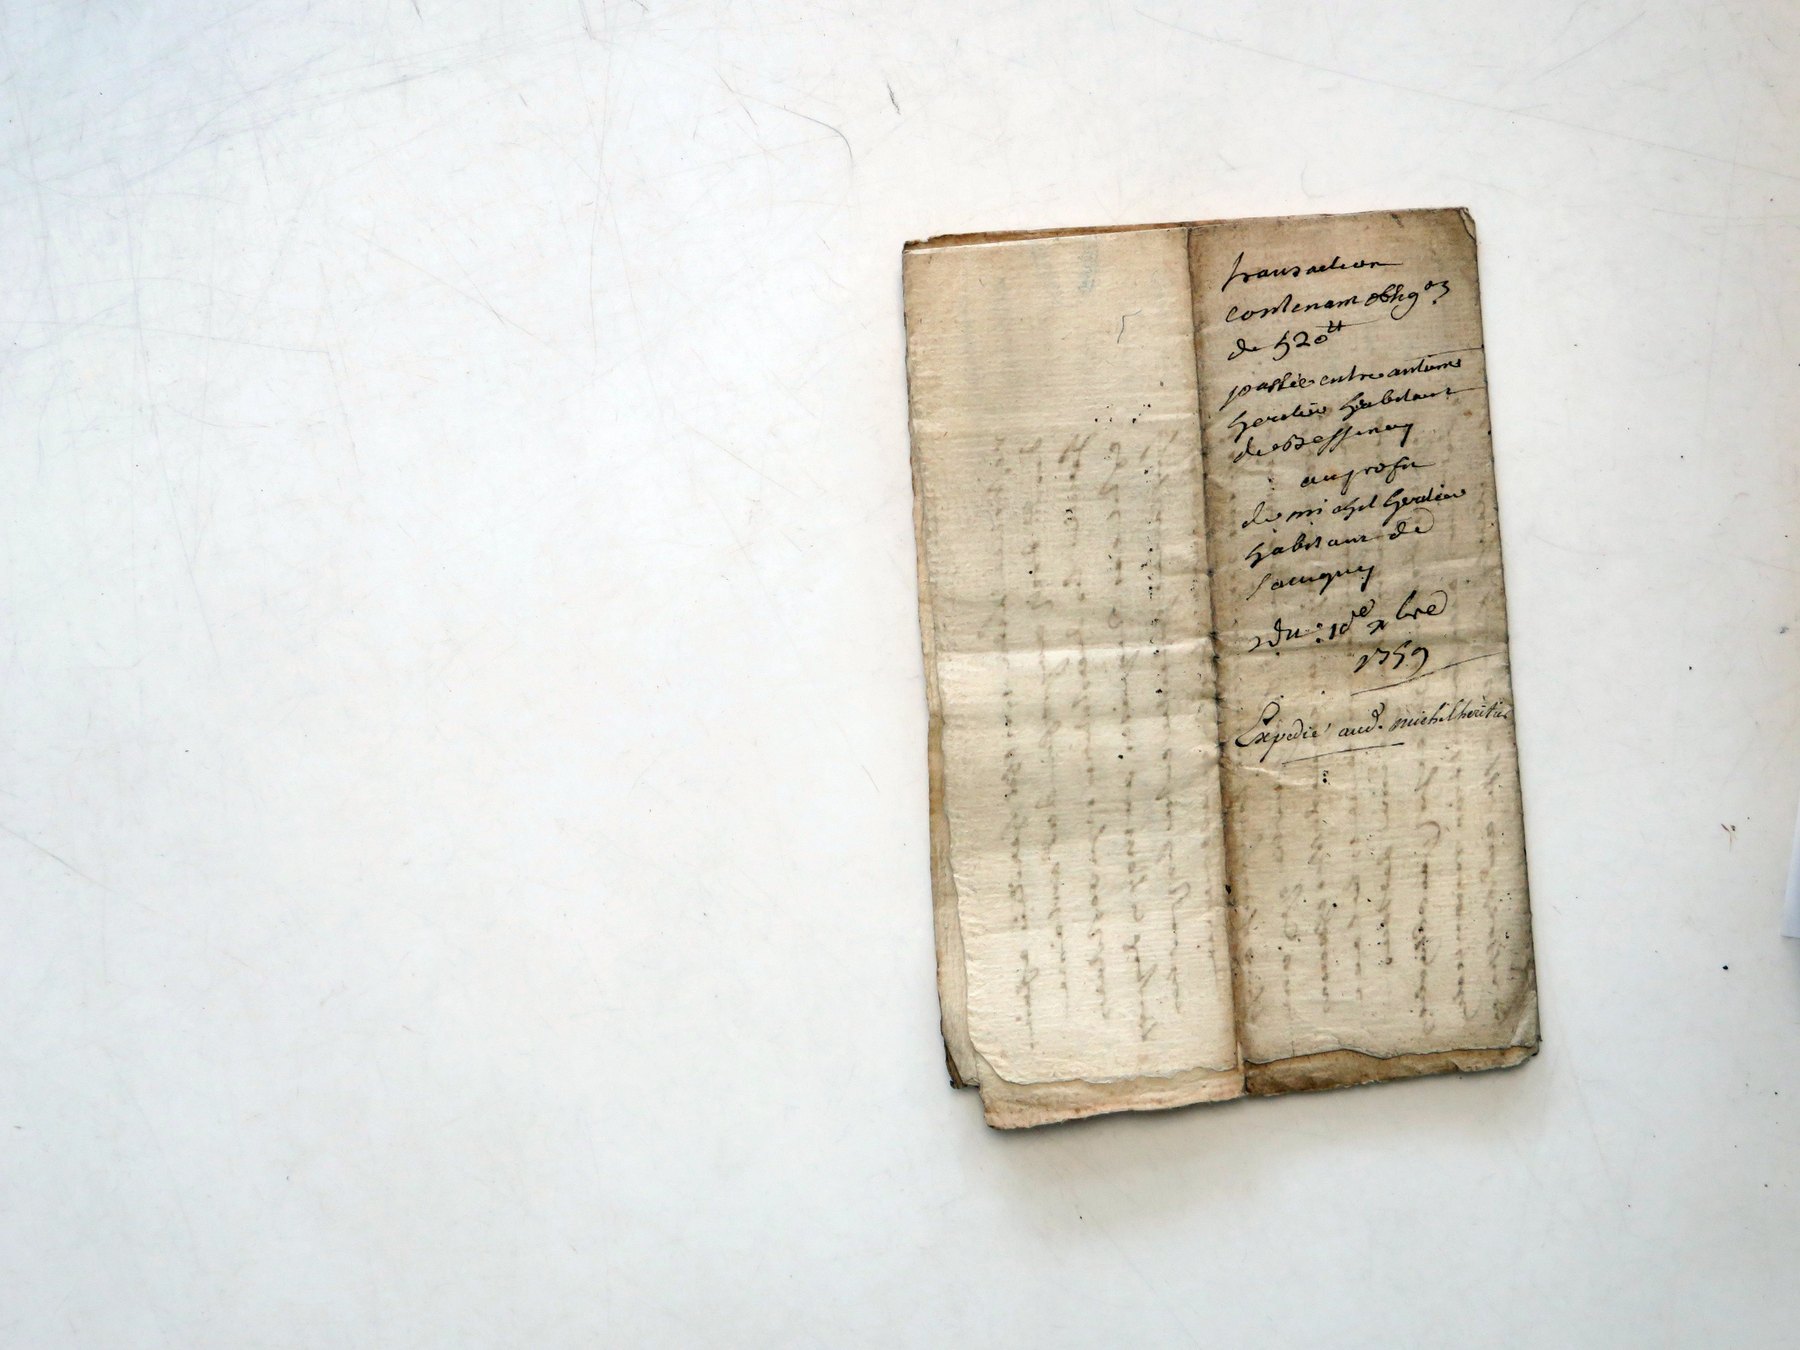 transaction
contenant oblig.on
de 520 tt
passée entre antoine
heritier habitant
de Bessenay
au profit
de michel heritier
habitant de
Savigny
Du: 10e xbre
1759
Expedié aud. michel heritier